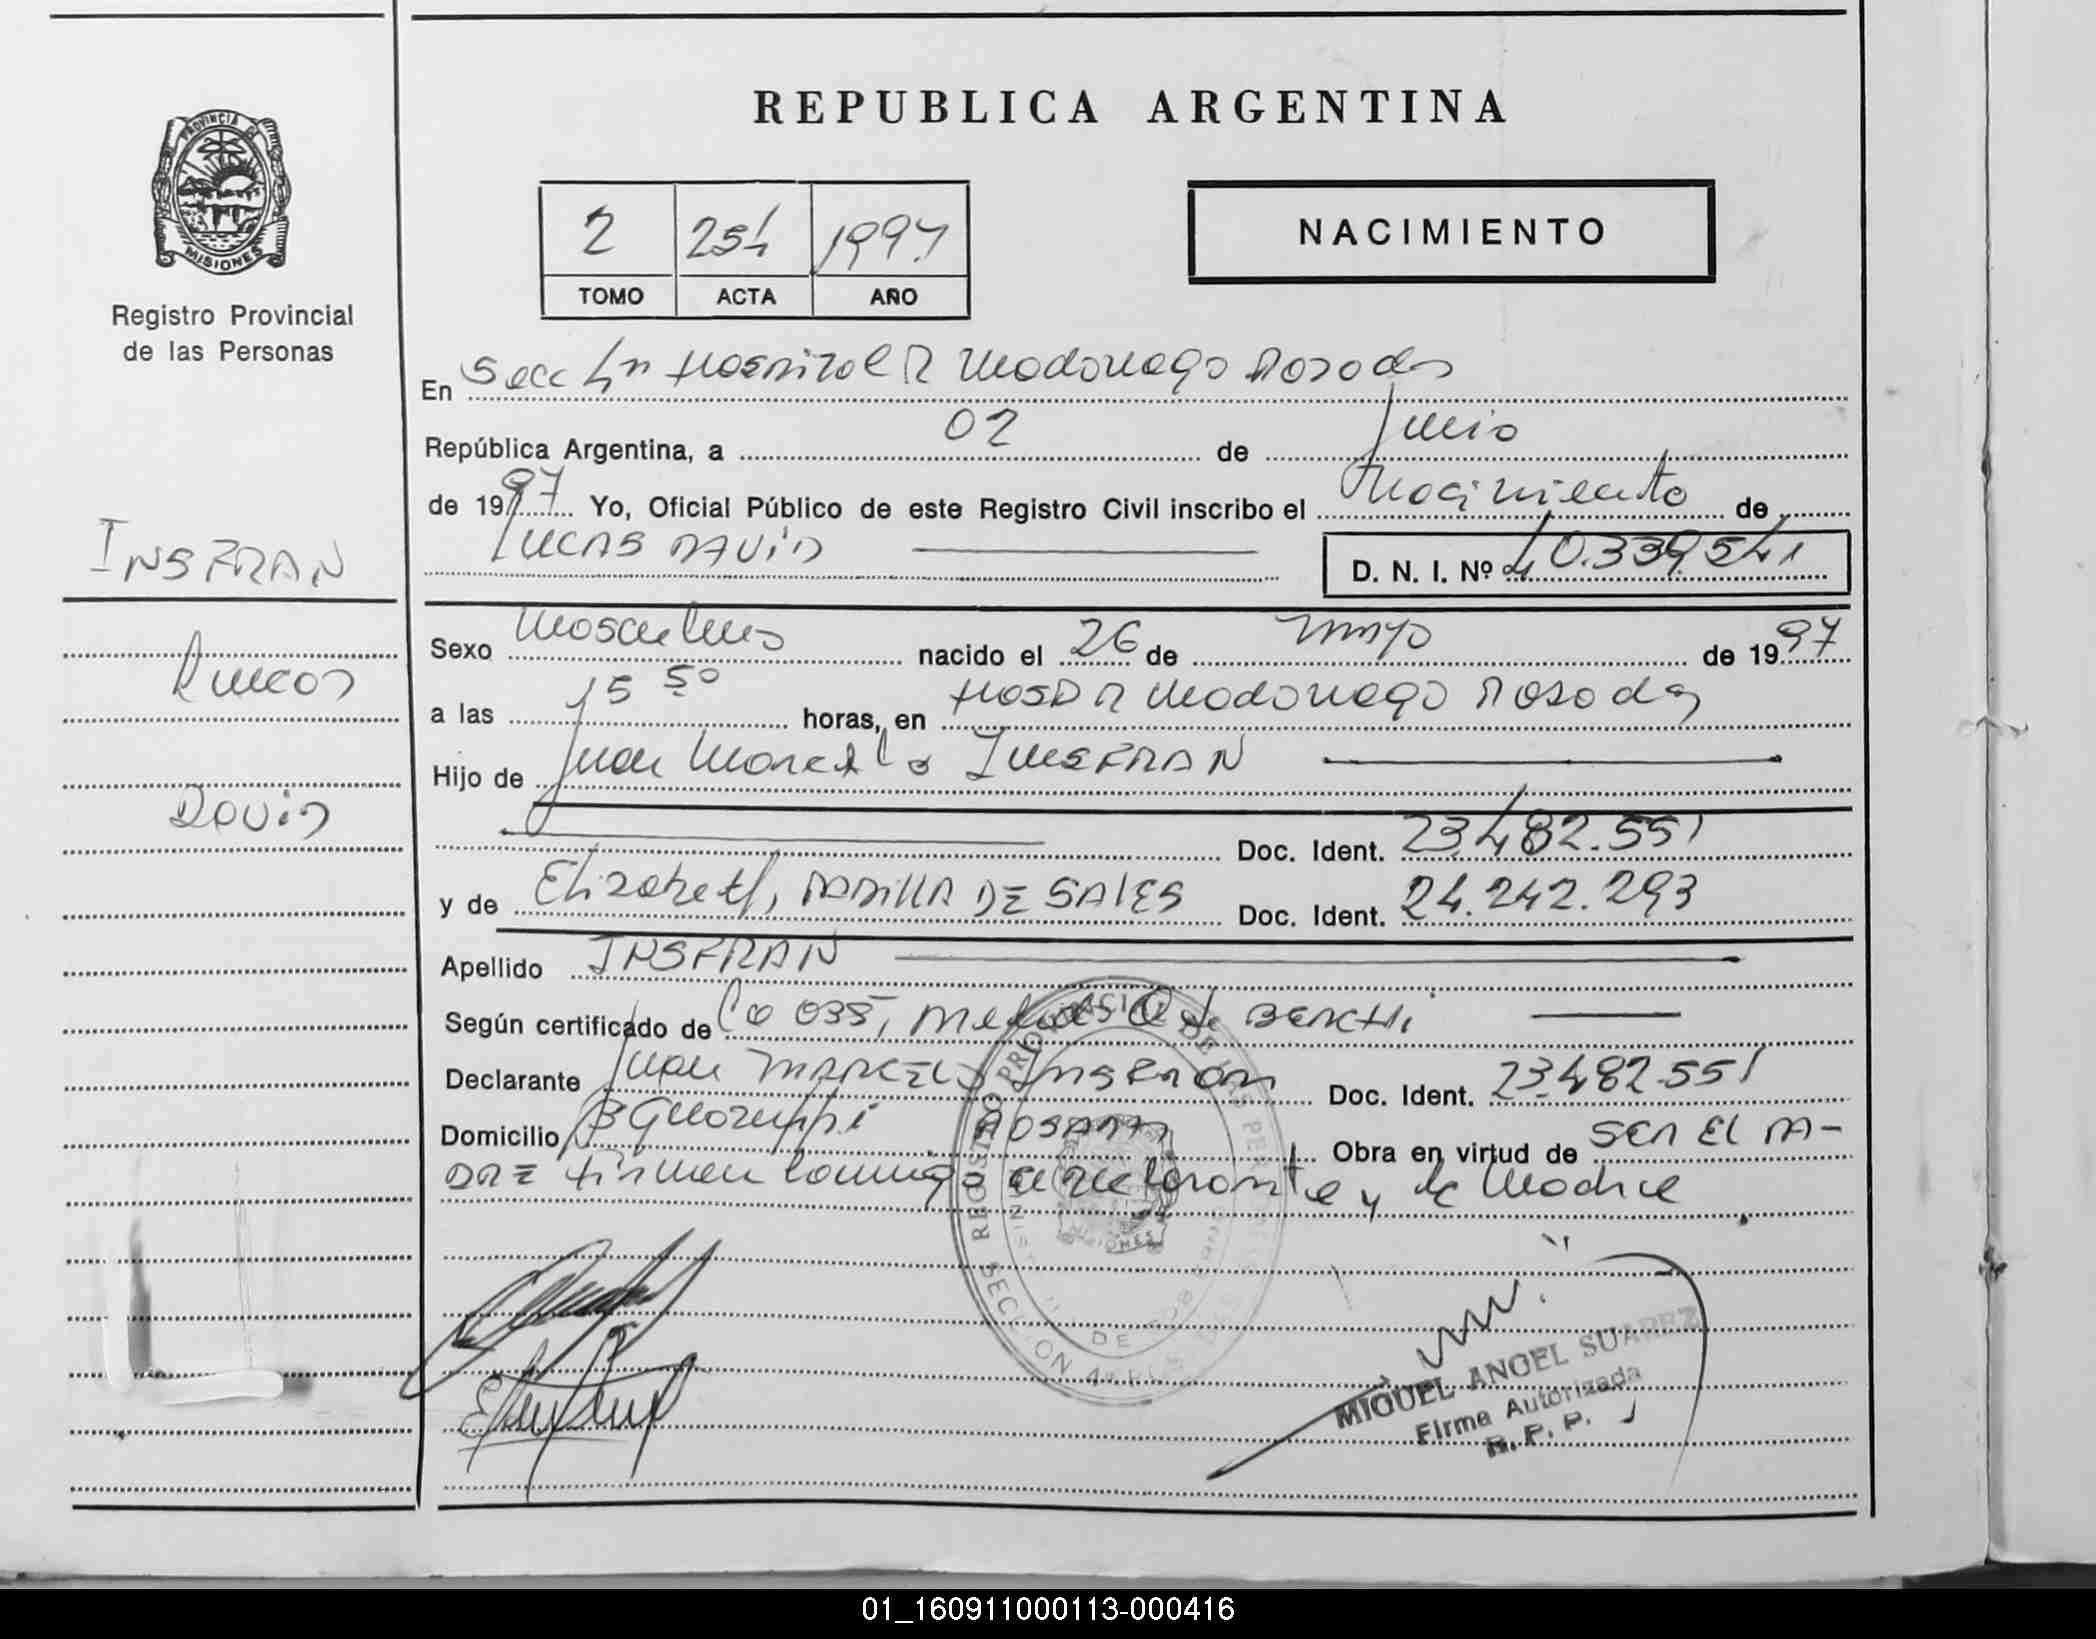 REPUBLICA ARGENTINA
PROVINCIA DE
MISIONES
Registro Provincial
de las Personas
2 254 1997
TOMO ACTA AÑO
NACIMIENTO
En Secc 4ta Hospital R Madariaga Posadas
República Argentina, a 02 de Junio
de 1997 Yo, Oficial Público de este Registro Civil inscribo el Nacimiento de
LUCAS DAVID
D. N. I. Nº 40.339.541
INSFRAN
Lucas
David
Sexo Masculino nacido el 26 de mayo de 1997
a las 15 50 horas, en Hosp R Madariaga Posadas
Hijo de Juan Marcelo INSFRAN
Doc. Ident. 23.482.551
y de Elizabeth, PADILLA DE SALES Doc. Ident. 24.242.293
Apellido INSFRAN
Según certificado de Co 035, de
Declarante Juan MARCELO Insfran Doc. Ident. 23.482.551
Domicilio POSADAS Obra en virtud de SER EL PA-
DRE firman conmigo declarante y la Madre
REGISTRO PROVINCIAL DE LAS PERSONAS
SECCION 4ª
MISIONES
MIGUEL ANGEL SUAREZ
Firma Autorizada
R. P. P.
01_160911000113-000416